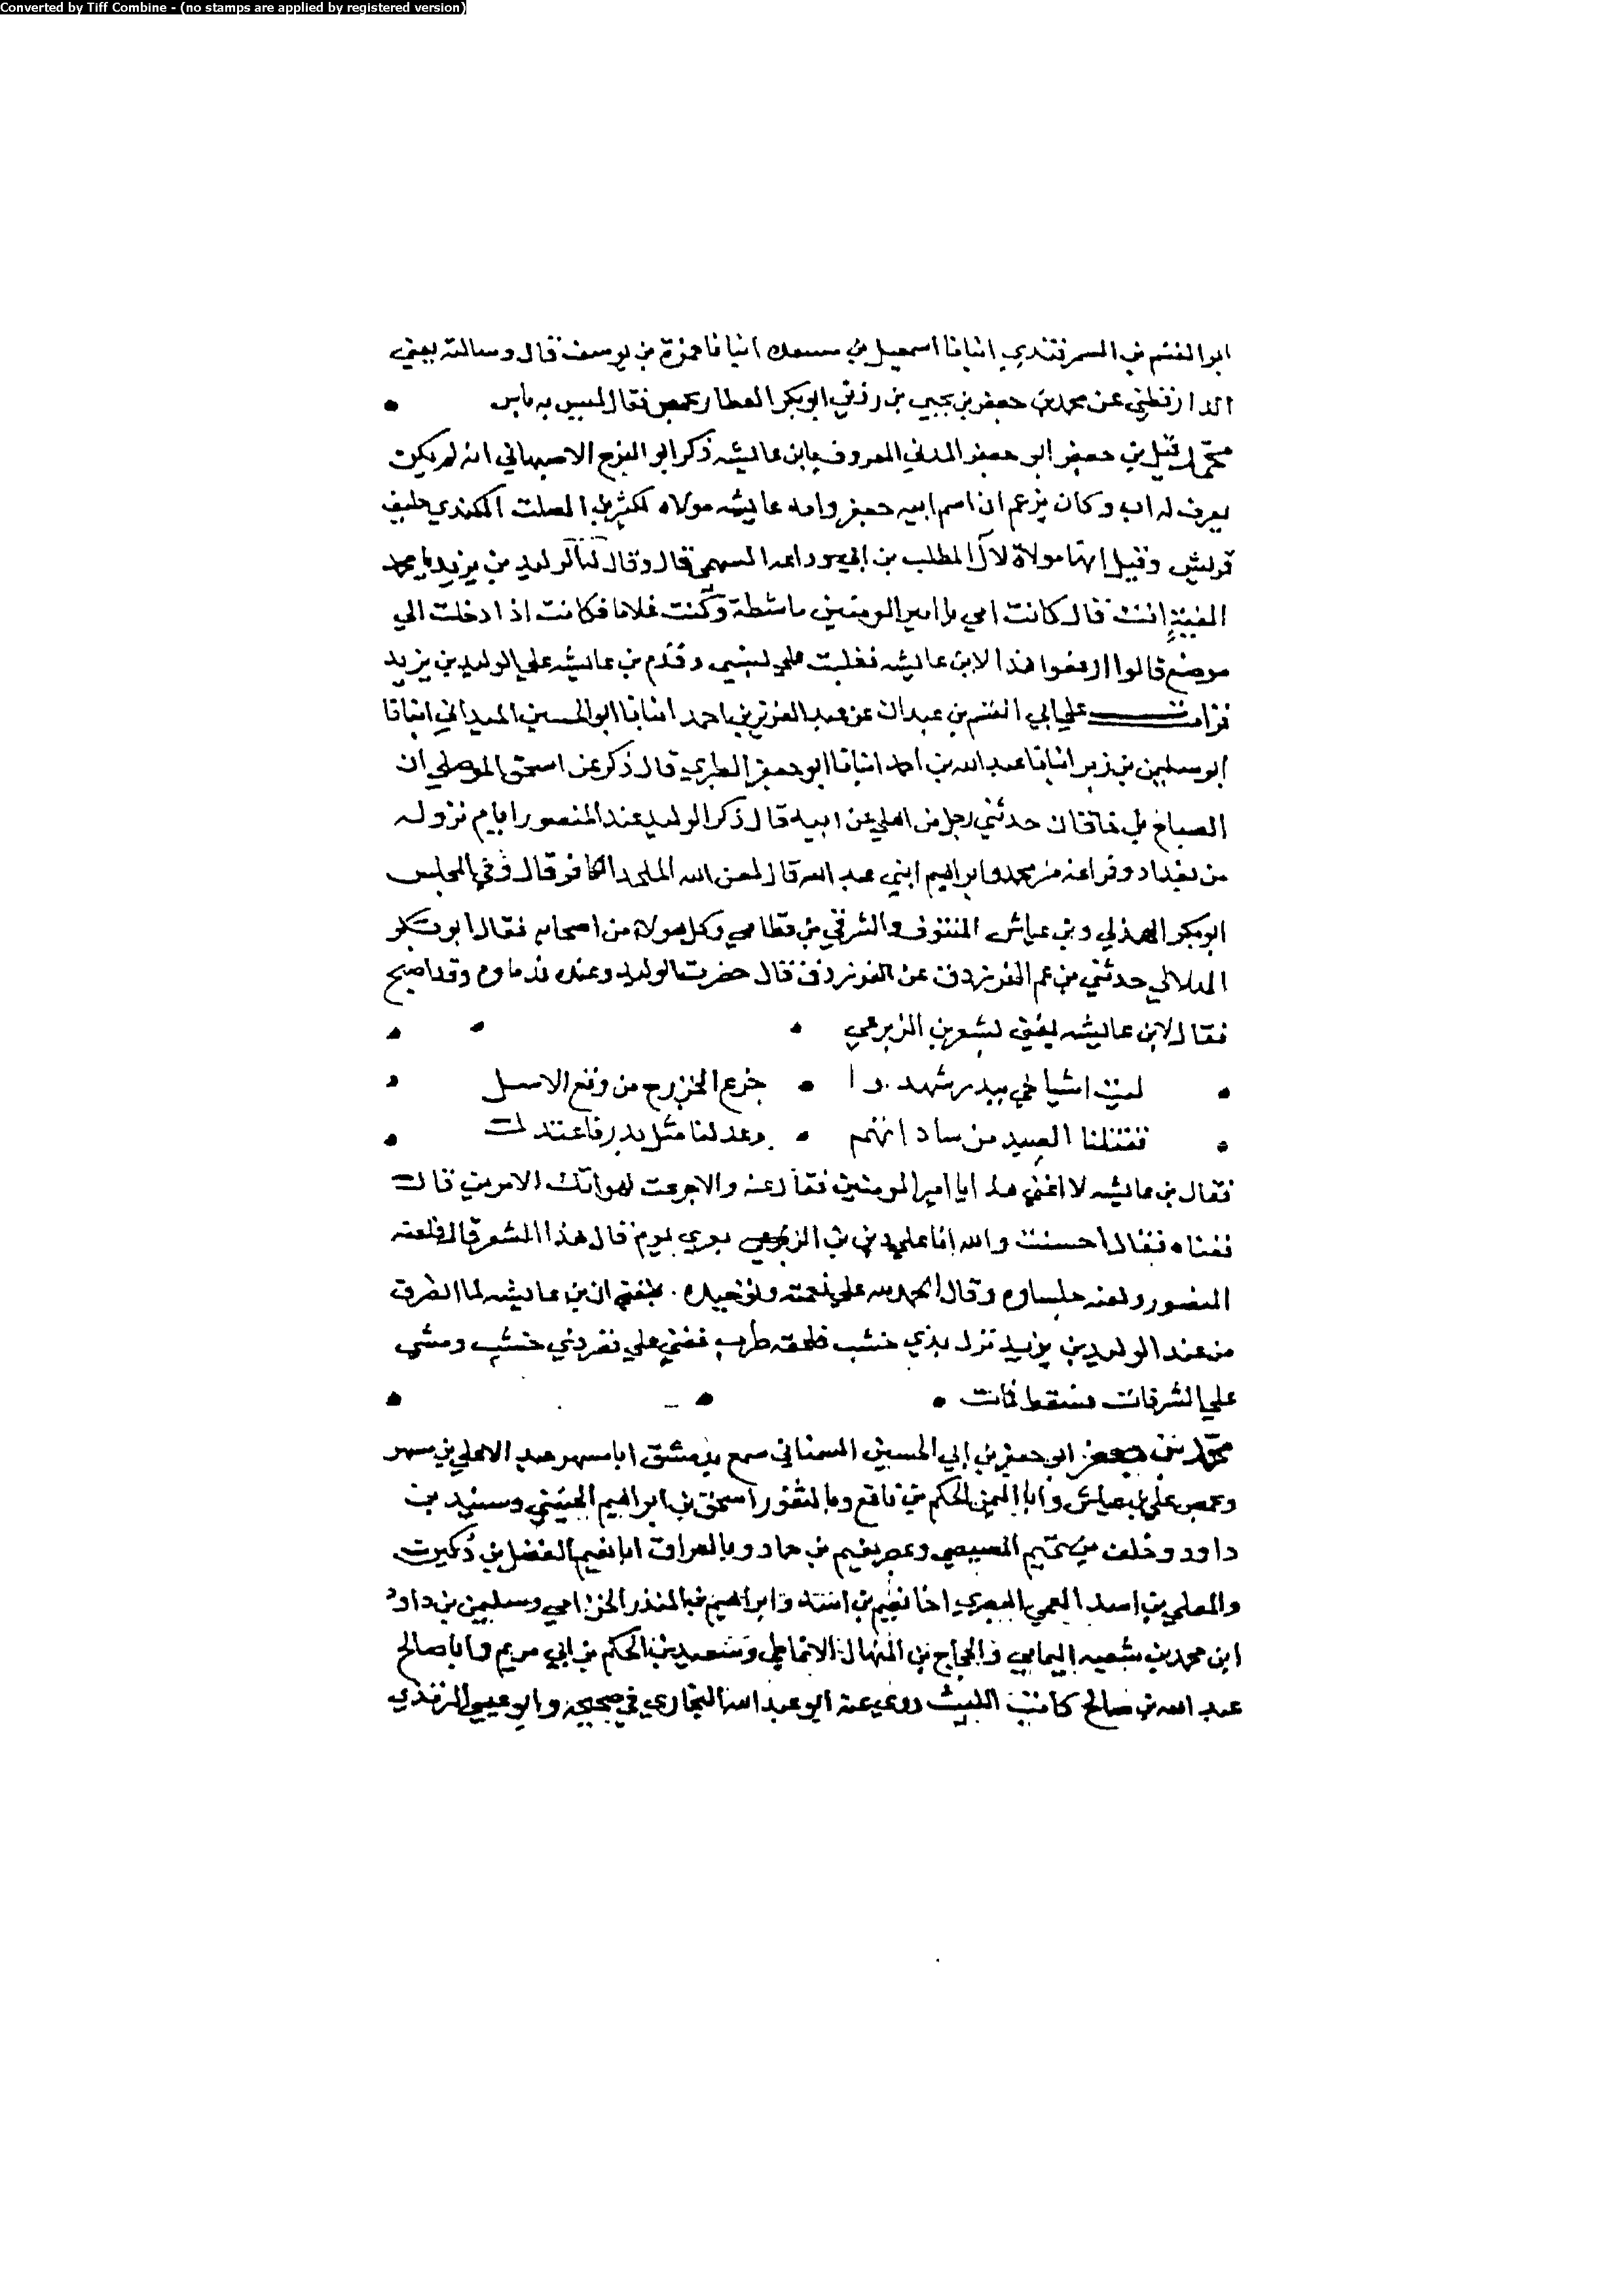 Converted by Tiff Combine - (no stamps are applied by registered version)
ابو القسم بن السمرقندي انبانا اسمعيل بن مسعده انبانا حمزة بن يوسف قال وسالته يعني
الدارقطني عن محمد بن جعفر بن يحيي بن رزين ابو بكر العطار بحمص فقال ليس به باس
محمد بن جعفر ابو جعفر المدني المعروف بابن عايشه ذكر ابو الفرج الاصبهاني انه لم يكن
يعرف له اب وكان يزعم ان اسم ابيه جعفر وامه عايشه مولاه لكثير بن الصلت الكندي حليف
قريش وقيل انها مولاة لآل المطلب بن ابي وداعه السهمي قال وقال لنا الوليد بن يزيد يا محمد
انت قال كانت امي يا امير المومنين ماشطة وكنت غلاما فكانت اذا دخلت الي
موضع قالوا ارفعوا هذا لابن عايشه فغلبت علي نسبي وقدم بن عايشه علي الوليد بن يزيد
قرات علي ابي القسم بن عبدان عن عبد العزيز بن احمد انبانا ابو الحسين الميداني انبانا
ابو سليمن بن زبر انبانا عبد الله بن احمد انبانا ابو جعفر الطبري قال ذكر عن اسحق الموصلي ان
الصباح بن خاقان حدثني رجل من اهلي عن ابيه قال ذكر الوليد عند المنصور ايام نزوله
من بغداد وفراغه من محمد وابراهيم ابني عبد الله قال لعن الله الملحد الكافر قال وفي المجلس
ابو بكر الهذلي وبن عياش المنتوف والشرقي بن قطامي وكل هولاء من اصحابه فقال ابو بكر
الهلالي حدثني بن عم الفرزدق عن الفرزدق قال حضرت الوليد وعنده ندماوه وقد اصبح
فقال لابن عايشه يغني بشعر بن الزبرعي
ليت اشياخي ببدر شهدوا جزع الخزرج من وقع الاسل
فقتلنا الصيد من ساداتهم وعدلنا مثل بدر فاعتدل
فقال بن عايشه لا اغني هذا يا امير المومنين فقال غنه والا جرعت لهواتك الامرين قال
فغناه فقال احسنت والله انا علي دين بن الزبرعي يوم قال هذا الشعر قال فلعنه
المنصور ولعنه جلساوه وقال الحمد لله علي نعمته وتوحيده . بلغني ان بن عايشه لما انصرف
من عند الوليد بن يزيد نزل بذي خشب فلحقه طرب فغني علي قصر ذي خشب ومشي
علي الشرفات فسقط فمات
محمد بن جعفر ابو جعفر بن ابي الحسين السمناني سمع بدمشق ابا مسهر عبد الاعلي بن مسهر
وبحمص علي بن عياش وابا اليمن الحكم بن نافع وبالثغور اسحق بن ابراهيم الحنيني وسنيد بن
داود وخلف بن تميم المصيصي وبمصر نعيم بن حماد وبالعراق ابا نعيم الفضل بن دكين
والمعلي بن اسد العمي البصري اخا بن اسد وابراهيم بن المنذر الخزامي وسليمن بن داود
ابن محمد بن شعبه اليمامي والحجاج بن المنهال الانماطي وسعيد بن الحكم بن ابي مريم وابا صالح
عبد الله بن صالح كاتب الليث روي عنه ابو عبد الله البخاري في صحيحه وابو عيسي الترمذي